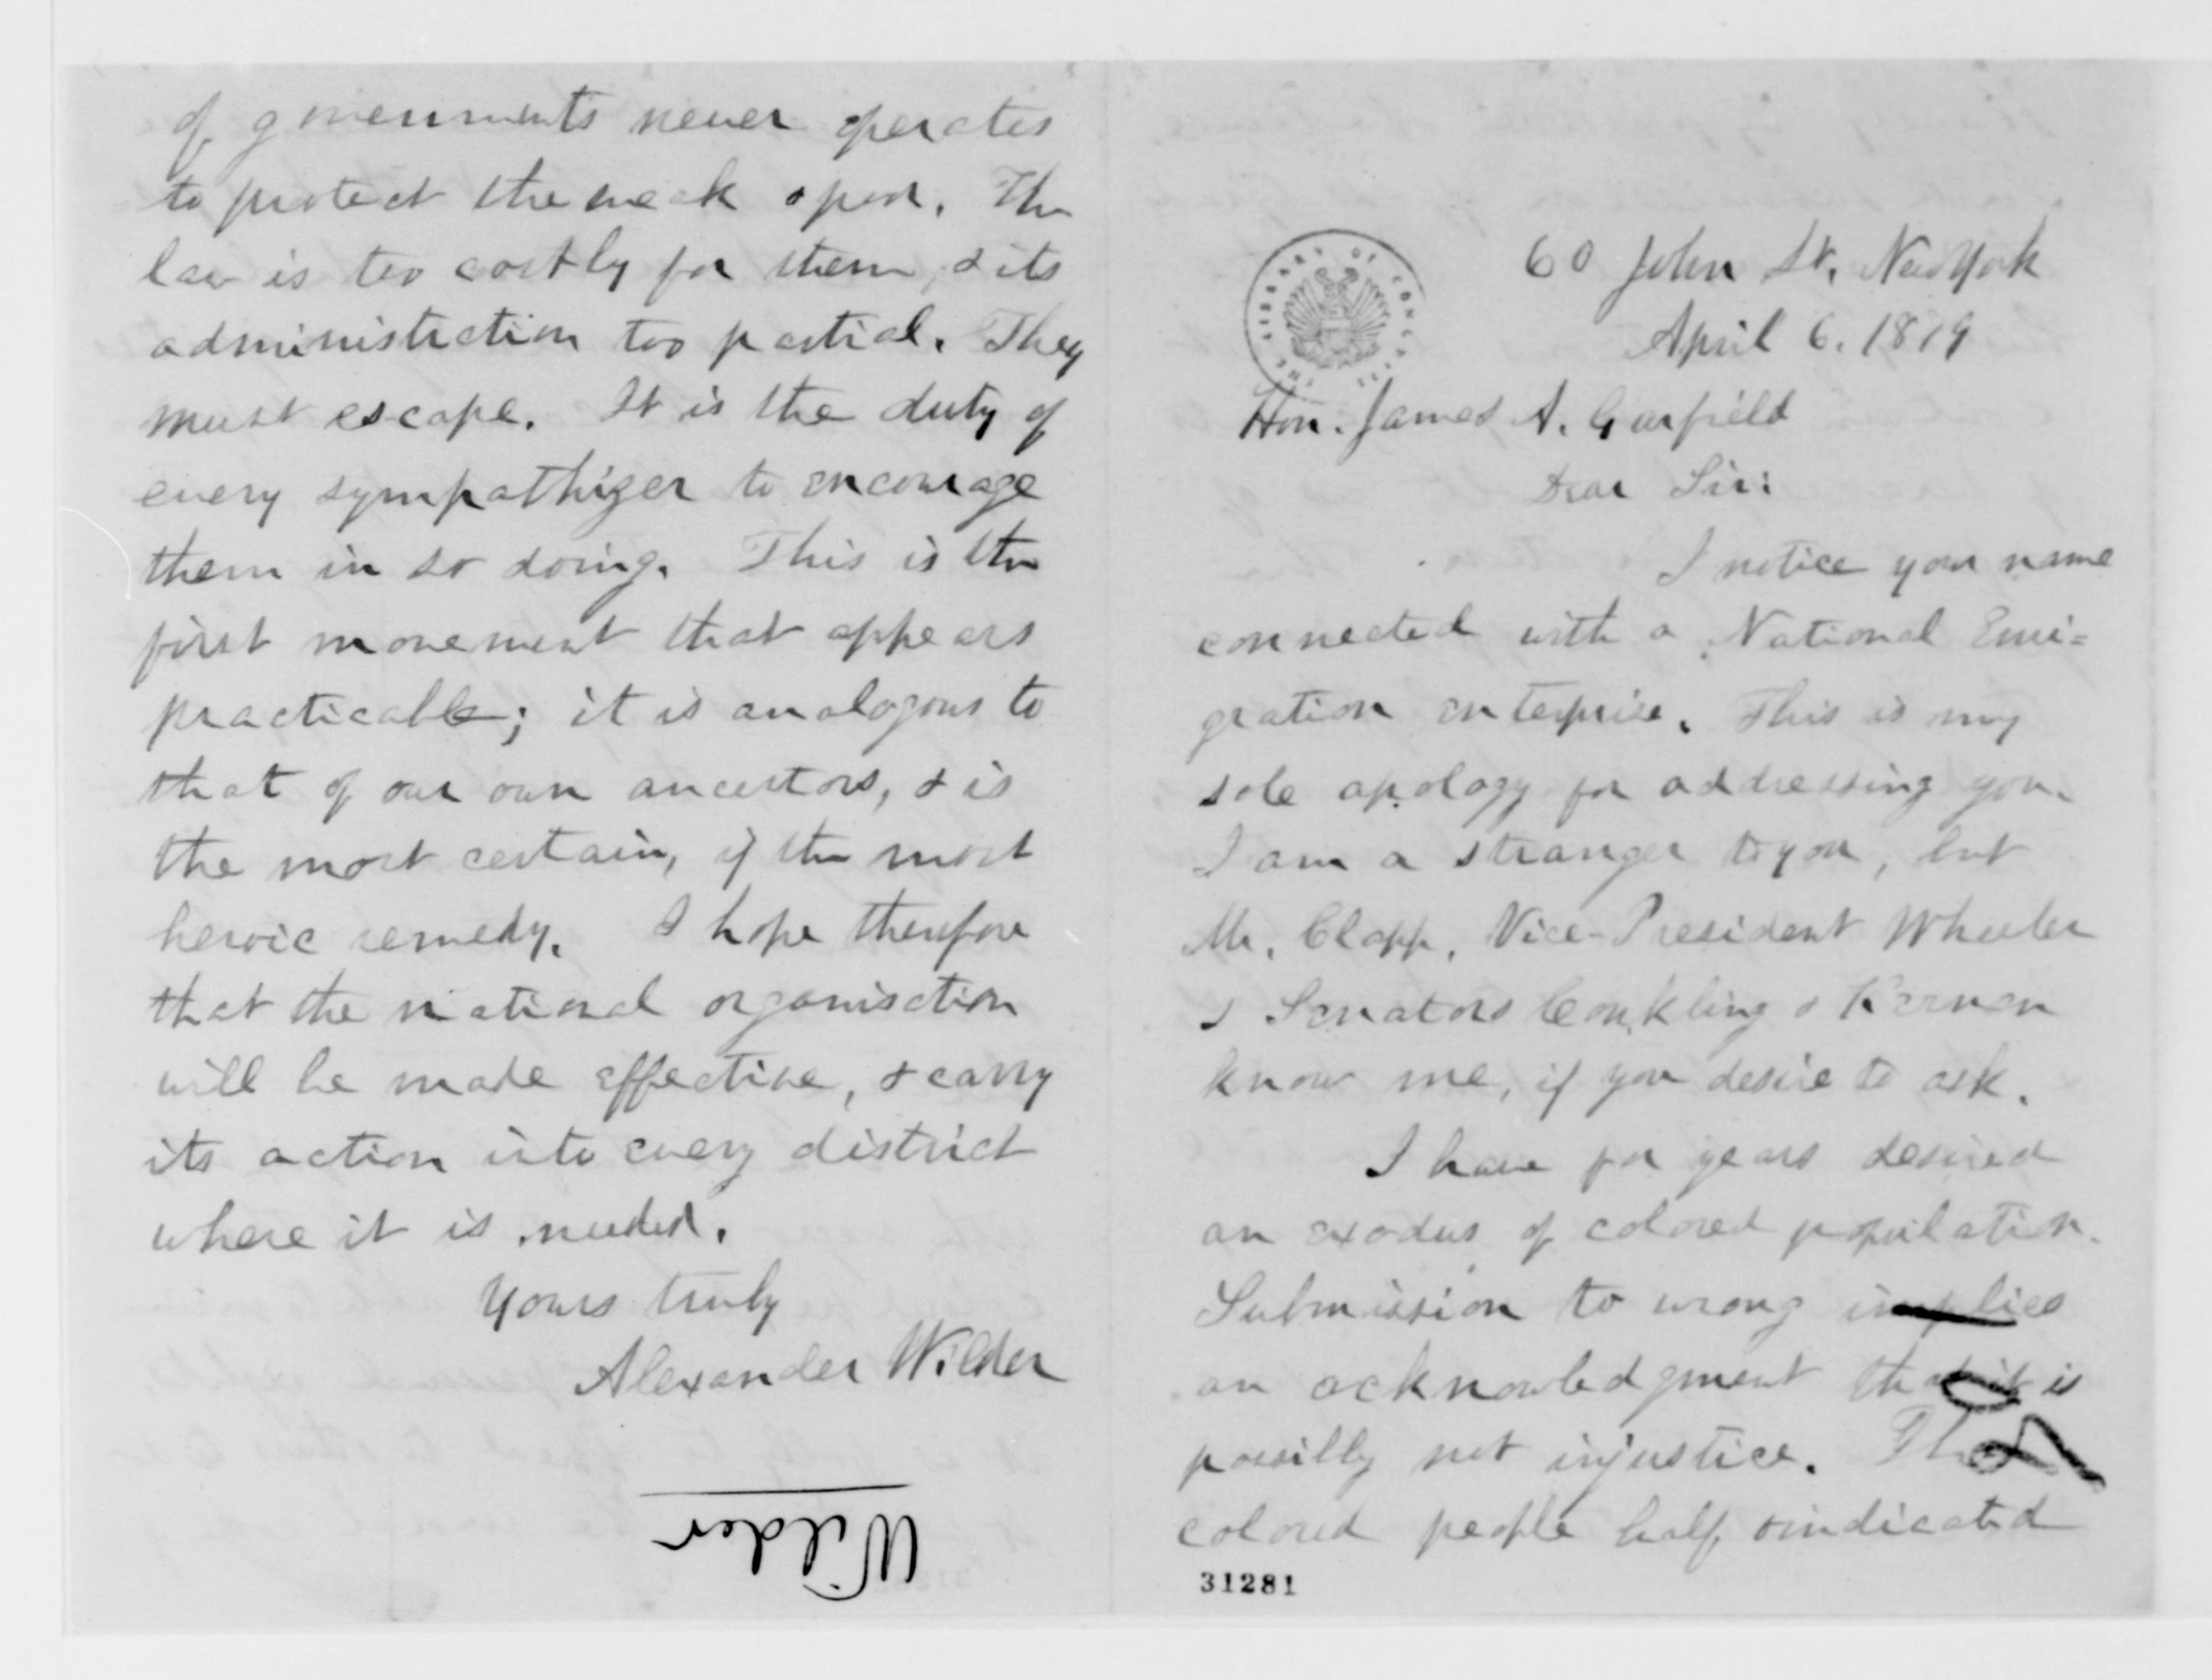 60 John St. New York
April 6. 1879
Hon. James A. Garfield
Dear Sir:
I notice your name
connected with a National Emi=
gration enterprise. This is my
sole apology for addressing you.
I am a stranger to you, but
Mr. Clapp, Vice-President Wheeler
& Senators Conkling & Kernan
know me, if you desire to ask.
I have for years desired
an exodus of colored population.
Submission to wrong implies
an acknowledgment that it is
possibly not injustice. The
colored people half vindicated
31281
of governments never operates
to protect the weak & poor. The
law is too costly for them, & its
administration too partial. They
must escape. It is the duty of
every sympathizer to encourage
them in so doing. This is the
first movement that appears
practicable; it is analogous to
that of our own ancestors, & is
the most certain, if the most
heroic remedy. I hope therefore
that the national organisation
will be made effective, & carry
its action into every district
where it is needed.
Yours truly
Alexander Wilder
Wilder
THE LIBRARY OF CONGRESS